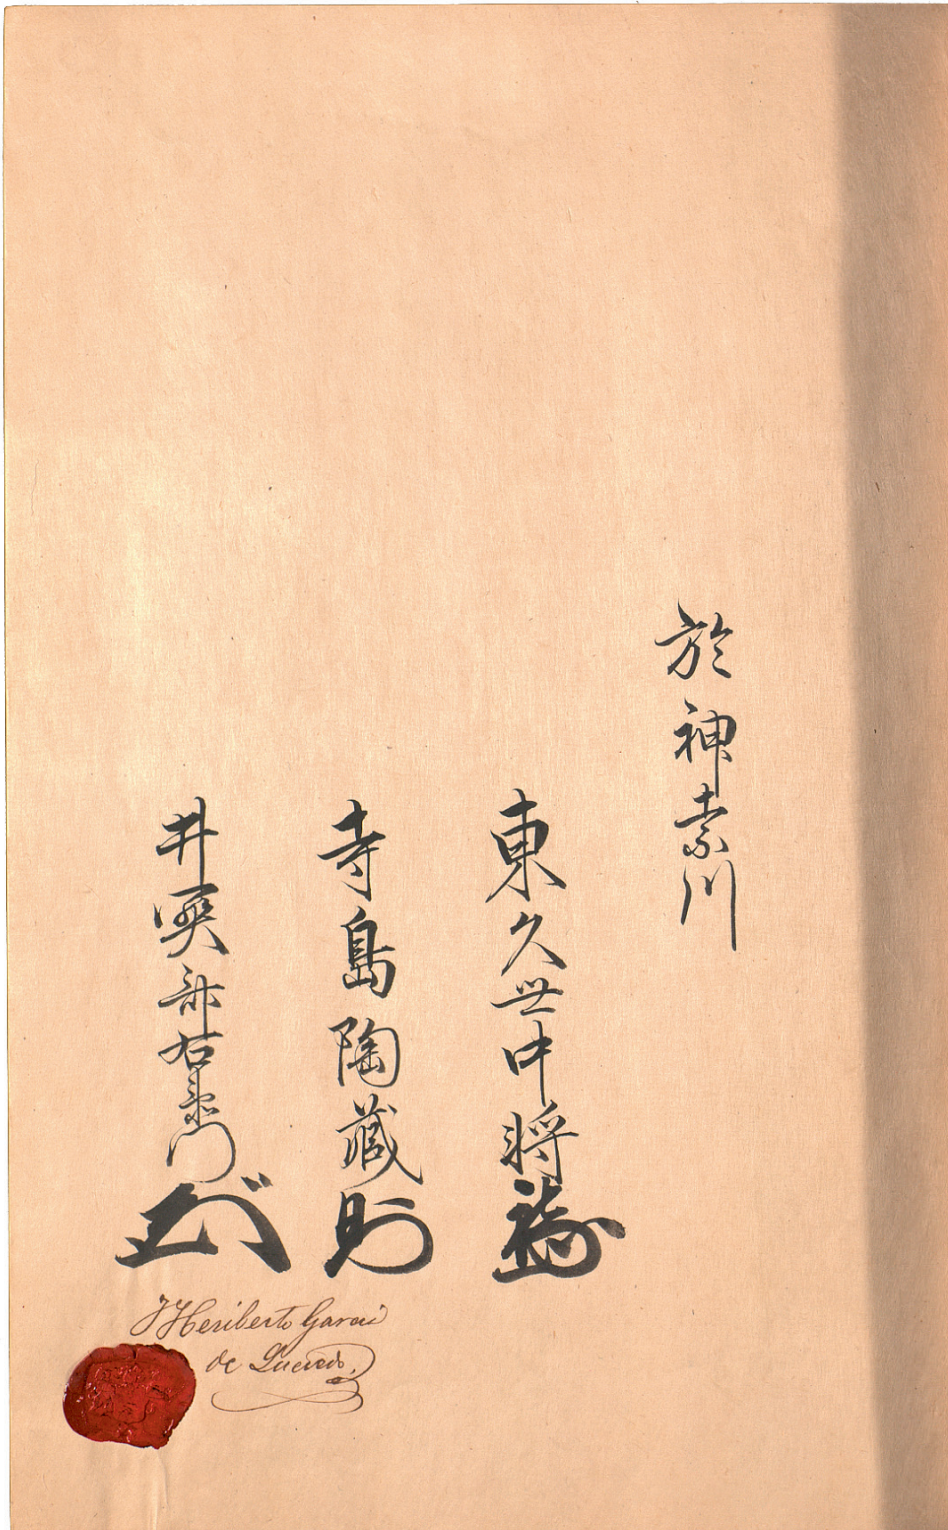 於神奈川
東久世中将
寺島陶蔵
井関斎右衛門
J Heriberto Garcia
de Quevedo